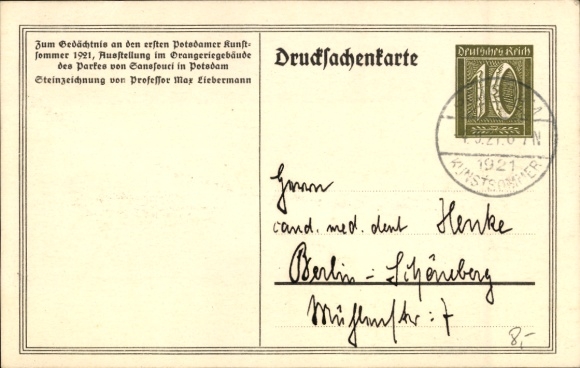 Zum Gedächtnis an den ersten Potsdamer Kunst-
sommer 1921, Ausstellung im Orangeriegebäude
des Parkes von Sanssouci in Potsdam
Steinzeichnung von Professor Max Liebermann
Drucksachenkarte
Deutsches Reich
10
1921
KUNSTSOMMER
Herrn
cand. med. dent Henke
Berlin-Schöneberg
Mühlenstr: 7
8,-